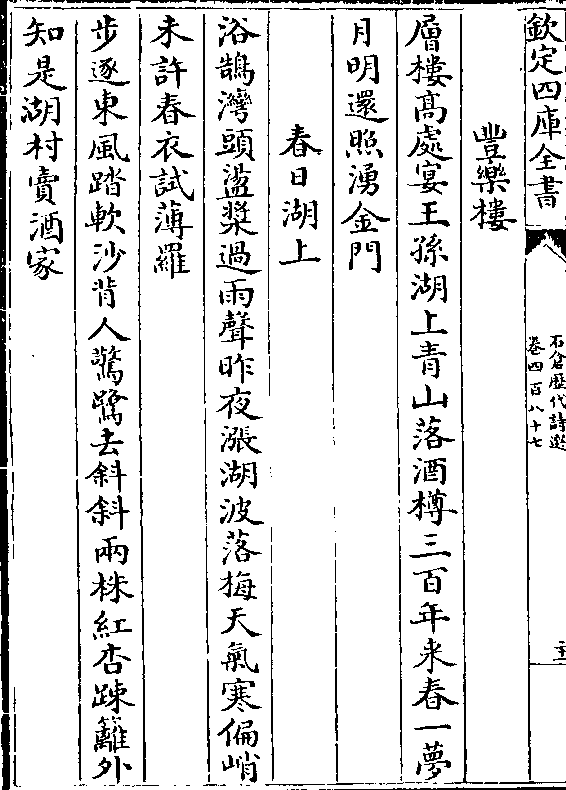 欽定四庫全書
石倉歴代詩選
卷四百八十七
豐樂樓
層樓髙處宴王孫湖上青山落酒樽三百年来春一夢
月明還照湧金門
春日湖上
浴鵠灣頭盪槳過雨聲昨夜漲湖波落梅天氣寒偏峭
未許春衣試薄羅
步逐東風踏軟沙背人驚鷺去斜斜兩株紅杏疎籬外
知是湖村賣酒家